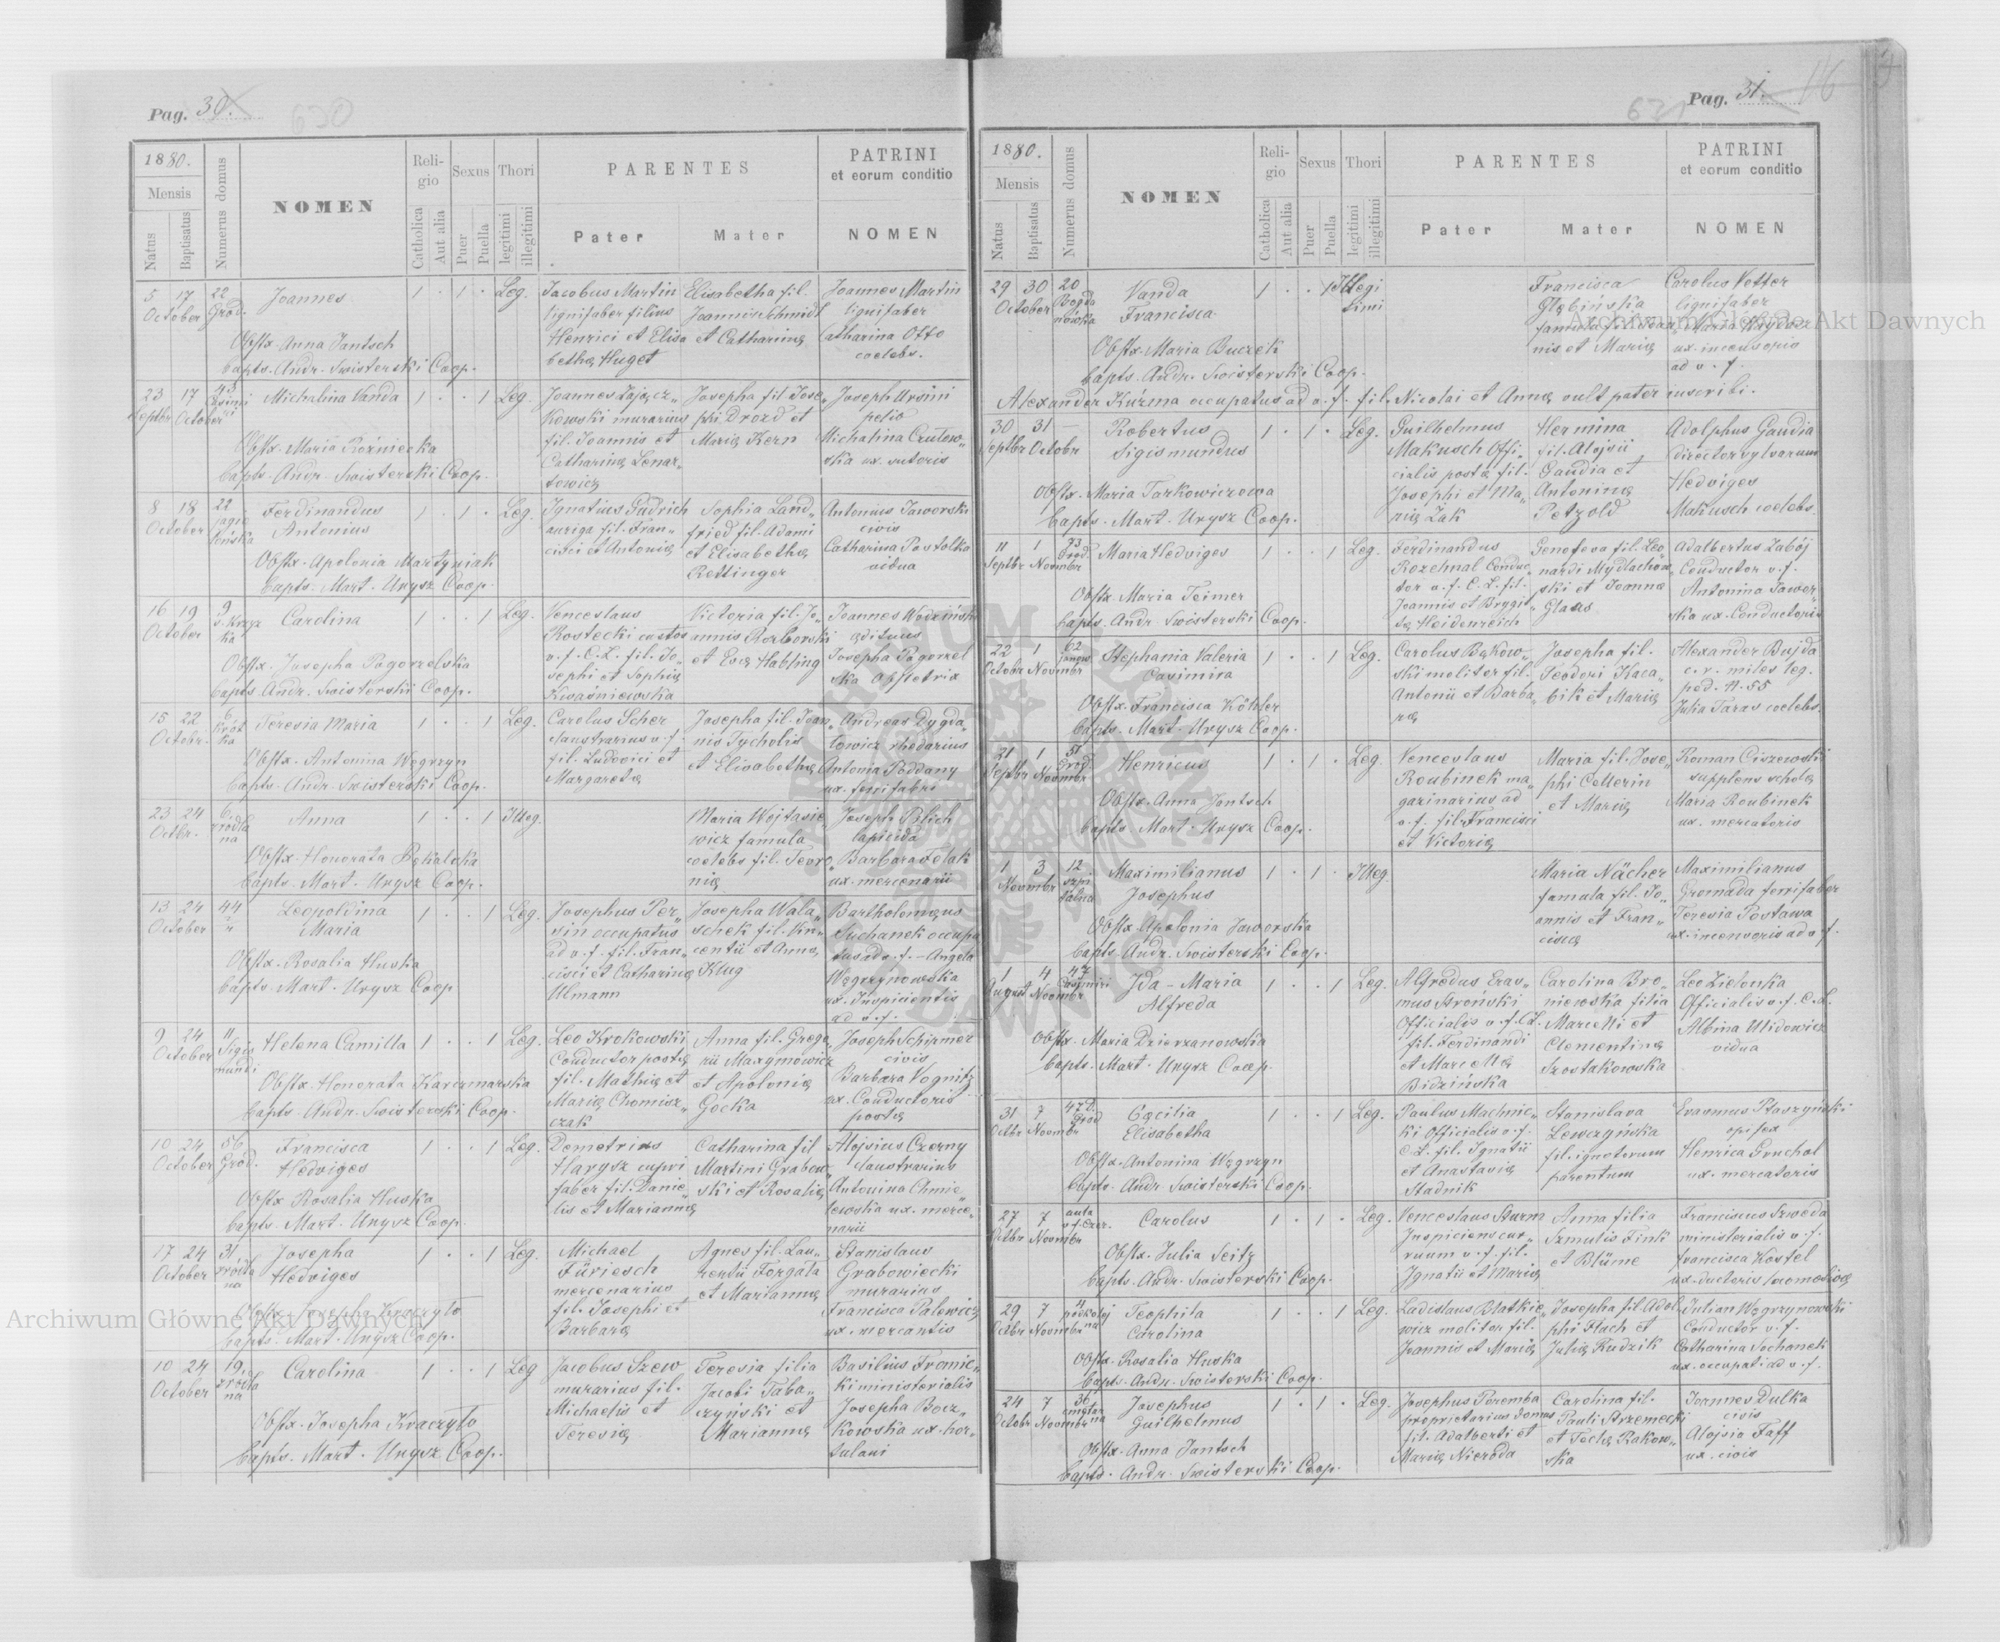 Pag. 30.
630
1880.
Mensis
Natus
Baptisatus
Numerus domus
NOMEN
Religio
Catholica
Aut alia
Sexus
Puer
Puella
Thori
legitimi
illegitimi
PARENTES
Pater
Mater
PATRINI
et eorum conditio
NOMEN
5 17 October
22 Gród.
Joannes
1 . 1 . Leg.
Obstx. Anna Jantsch
bapts. Andr. Swisterski Coop.
Jacobus Martin
lignifaber filius
Henrici et Elisa
bethae Huget
Elisabetha fil.
Joannis Schmidt
et Catharinae
Joannes Martin
lignifaber
Catharina Otto
coelebs.
23 Septbr 17 October
Michalina Vanda
1 . . 1 Leg.
Obstx. Maria Rożniecka
bapts. Andr. Swisterski Coop.
Joannes Zającz„
kowski murarius
fil. Joannis et
Catharinae Lenar„
towicz
Josepha fil. Jose„
phi Drozd et
Mariae Kern
Joseph Ursini
Michalina Czulow„
ska ux. sutoris
8 18 October
22 Jagiellońska
Ferdinandus
Antonius
1 . 1 . Leg.
Obstx. Apolonia Martyniak
bapts. Mart. Urysz Coop.
Ignatius Gudrich
auriga fil. Fran„
cisci et Antoniae
Sophia Land„
fried fil. Adami
et Elisabethae
Rettinger
Antonius Jaworski
civis
Catharina Postolka
vidua
16 19 October
9
Carolina
1 . . 1 Leg.
Obstx. Josepha Pogorzelska
bapts. Andr. Swisterski Coop.
Venceslaus
Rostecki custos
v. f. C. L. fil. Jo„
sephi et Sophiae
Kwaśniewska
Victoria fil. Jo„
annis Rorborski
et Evae Habling
Joannes Wodziński
aedituus
Josepha Pogorzel
ska Obstetrix
15 22 Octobr.
6
Teresia Maria
1 . . 1 Leg.
Obstx. Antonina Węgrzyn
bapts. Andr. Swisterski Coop.
Carolus Scher
claustrarius v. f.
fil. Ludovici et
Margaretae
Josepha fil. Joan„
nis Tycholis
et Elisabethae
Andreas Dygda„
łowicz rhedarius
Antonia Poddany
ux. ferrifabri
23 24 Octbr.
6. źródlana
Anna
1 . . 1 Illeg.
Obstx. Honorata Bękalska
bapts. Mart. Urysz Coop.
Maria Wojtasie„
wicz famula
coelebs fil. Fevro„
niae
Joseph Pblich
lapicida
Barbara Felak
ux. mercenarii
13 24 October
44
Leopoldina
Maria
1 . . 1 Leg.
Obstx. Rosalia Huska
bapts. Mart. Urysz Coop
Josephus Per„
sin occupatus
ad v. f. fil. Fran„
cisci et Catharinae
Ulmann
Josepha Wala„
schek fil. Vin„
centii et Annae
Klug
Bartholomaeus
Suchanek occupa
tus ad v. f. – Angela
Węgrzynowska
ux. Inspicientis
ad v. f.
9 24 October
11 Sigismundi
Helena Camilla
1 . . 1 Leg.
Obstx. Honorata Karczmarska
bapts. Andr. Swisterski Coop.
Leo Krokowski
Conductor postae
fil. Mathiae et
Mariae Chomisz„
czak
Anna fil. Grego
rii Maxymowicz
et Apoloniae
Gocka
Joseph Schirmer
civis
Barbara Wognitz
ux. Conductoris
postae
10 24 October
56 Gród.
Francisca
Hedviges
1 . . 1 Leg.
Obstx. Rosalia Huska
bapts. Mart. Urysz Coop.
Demetrius
Harysz cupri
faber fil. Danie„
lis et Mariannae
Catharina fil
Martini Grabow„
ski et Rosaliae
Alojsius Czerny
claustrarius
Antonina Chmie„
lewska ux. merce„
narii
17 24 October
31 źródlana
Josepha
Hedviges
1 . . 1 Leg.
Obstx. Josepha Kraczyło
bapts. Mart. Urysz Coop.
Michael
Füriesch
mercenarius
fil. Josephi et
Barbarae
Agnes fil. Lau„
rentii Forgala
et Mariannae
Stanislaus
Grabowiecki
murarius
Francisca Palewicz
ux. mercantis
10 24 October
19. źródlana
Carolina
1 . . 1 Leg
Obstx. Josepha Kraczyło
bapts. Mart. Urysz Coop.
Jacobus Szew
murarius fil.
Michaelis et
Teresiae
Teresia filia
Jacobi Taba„
czyński et
Mariannae
Basilius Franic„
ki ministerialis
Josepha Bocz„
kowska ux. hor„
tulani
Pag. 31.
631
16
1880.
Mensis
Natus
Baptisatus
Numerus domus
NOMEN
Religio
Catholica
Aut alia
Sexus
Puer
Puella
Thori
legitimi
illegitimi
PARENTES
Pater
Mater
PATRINI
et eorum conditio
NOMEN
29 30 October
20 Bogdanówka
Vanda
Francisca
1 . . 1 Illegi
timi
Obstx. Maria Buczek
bapts. Andr. Swisterski Coop.
Francisca
Głębińska
famula fil. Joan„
nis et Mariae
Carolus Vetter
lignifaber
ux. incensoris
ad v. f.
Alexander Kuźma occupatus ad v. f. fil. Nicolai et Annae vult pater inscribi.
30 Septbr 31 Octobr
Robertus
Sigismundus
1 . 1 . Leg.
Obstx. Maria Tarkowiczowa
bapts. Mart. Urysz Coop.
Guilhelmus
Makusch Offi„
cialis postae fil.
Josephi et Ma„
riae Żak
Hermina
fil. Alojsii
Gaudia et
Antoninae
Petzold
Adolphus Gaudia
director sylvarum
Hedviges
Makusch coelebs.
11 Septbr 1 Novmbr
73 Gród
Maria Hedviges
1 . . 1 Leg.
Obstx. Maria Teimer
bapts. Andr. Swisterski Coop.
Ferdinandus
Rozehnal Conduc„
tor v. f. C. L. fil.
Joannis et Brygit„
tae Heidenreich
Genofeva fil. Leo„
nardi Mydlachow„
ski et Joannae
Glaas
Adalbertus Zabój
Conductor v. f.
Antonina Jawor„
ska ux. Conductoris
22 Octobr 1 Novmbr
62
Stephania Valeria
Casimira
1 . . 1 Leg.
Obstx. Francisca Köhler
bapts. Mart. Urysz Coop.
Carolus Bąkow„
ski molitor fil.
Antonii et Barba„
rae
Josepha fil.
Teodori Kaca„
bik et Mariae
Alexander Bujda
c. r. miles leg.
ped. N. 55
Julia Taras coelebs.
21 Septbr 1 Novmbr
51 Gród
Henricus
1 . 1 . Leg.
Obstx. Anna Jantsch
bapts. Mart. Urysz Coop.
Venceslaus
Roubinek ma„
gazinarius ad
v. f. fil. Francisci
et Victoriae
Maria fil. Jose„
phi Cellerin
et Mariae
Roman Ciszewski
supplens scholae
Maria Roubinek
ux. mercatoris
1 3 Novmbr
12. szpitalna
Maximilianus
Josephus
1 . 1 . Illeg.
Obstx. Apolonia Jaworska
bapts. Andr. Swisterski Coop.
Maria Nächer
famula fil. Jo„
annis et Fran„
ciscae
Maximilianus
Gromada ferrifaber
Teresia Postawa
ux. incensoris ad v. f.
1 August 4 Novmbr
47 Casimiri
Ida – Maria
Alfreda
1 . . 1 Leg.
Obstx. Maria Dzierzanowska
bapts. Mart. Urysz Coop.
Alfredus Eras„
mus Stroński
Officialis v. f. C. L.
fil. Ferdinandi
et Marcellae
Bidzińska
Carolina Bro„
niewska filia
Marcelli et
Clementinae
Szostakowska
Leo Zielonka
Officialis v. f. C. L.
Albina Ulidowicz
vidua
31 Octbr 7 Novmbr
47 Gród
Caecilia
Elisabetha
1 . . 1 Leg.
Obstx. Antonina Węgrzyn
bapts. Andr. Swisterski Coop.
Paulus Machnic„
ki Officialis v. f.
C. L. fil. Ignatii
et Anastasiae
Stadnik
Stanislava
Lewczyńska
fil. ignotorum
parentum
Erasmus Ptaszyński
opifex
Henrica Gruchol
ux. mercatoris
27 Octbr 7 Novmbr
Carolus
1 . 1 . Leg.
Obstx. Julia Seitz
bapts. Andr. Swisterski Coop.
Venceslaus Sturm
Inspiciens cur„
ruum v. f. fil.
Ignatii et Mariae
Anna filia
Samulis Fink
et Blüme
Franciscus Szweda
ministerialis v. f.
Francisca Kostel
ux. ductoris locomotivae
29 Octbr 7 Novmbr
4
Teophila
Carolina
1 . . 1 Leg.
Obstx. Rosalia Huska
bapts. Andr. Swisterski Coop.
Ladislaus Blatkie„
wicz molitor fil.
Joannis et Mariae
Josepha fil. Adol„
phi Flach et
Juliae Rudzik
Julian Węgrzynowski
Conductor v. f.
Catharina Sochanek
ux. occupati ad v. f.
24 Octobr 7 Novmbr
36
Josephus
Guilhelmus
1 . 1 . Leg.
Obstx. Anna Jantsch
baptd. Andr. Swisterski Coop.
Josephus Poremba
proprietarius domus
fil. Adalberti et
Mariae Nieroda
Carolina fil.
Pauli Strzemecki
et Teclae Rakow„
ska
Joannes Dulka
civis
Alojsia Faff
ux. civis
Archiwum Główne Akt Dawnych
Archiwum Główne Akt Dawnych
ARCHIWUM GŁÓWNE AKT DAWNYCH